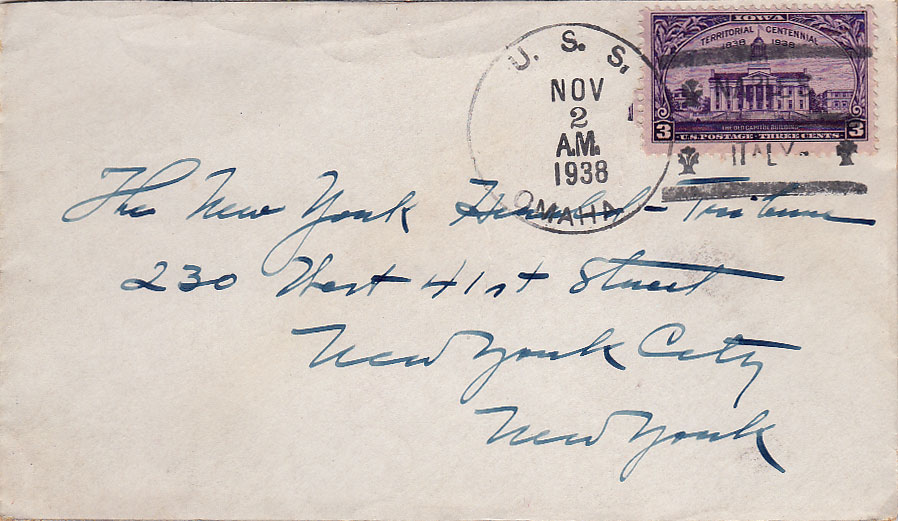 U. S. S.
NOV
2
A.M.
1938
OMAHA
IOWA
TERRITORIAL CENTENNIAL
1838 1938
NAPLES
THE OLD CAPITOL BUILDING
3 U.S. POSTAGE - THREE CENTS 3
ITALY
The New York Herald-Tribune
230 West 41st Street
New York City
New York